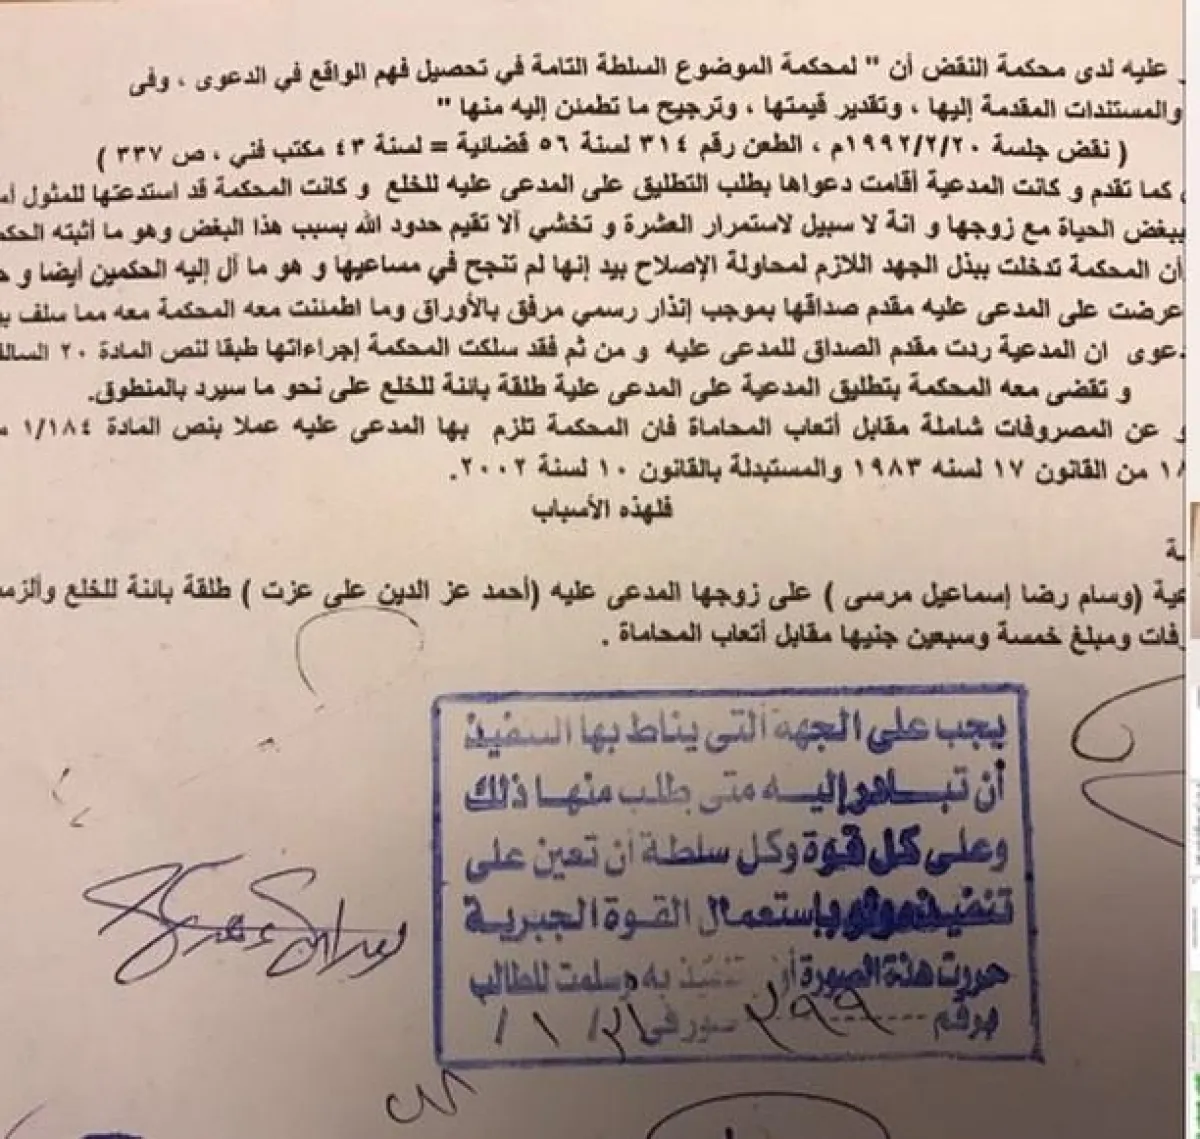 عليه لدى محكمة النقض أن " لمحكمة الموضوع السلطة التامة في تحصيل فهم الواقع في الدعوى ، وفى
والمستندات المقدمة إليها ، وتقدير قيمتها ، وترجيح ما تطمئن إليه منها "
( نقض جلسة ١٩٩٢/٢/٢٠م ، الطعن رقم ٣١٤ لسنة ٥٦ قضائية = لسنة ٤٣ مكتب فني ، ص ٣٣٧ )
كما تقدم و كانت المدعية أقامت دعواها بطلب التطليق على المدعى عليه للخلع و كانت المحكمة قد استدعتها للمثول
ببغض الحياة مع زوجها و انة لا سبيل لاستمرار العشرة و تخشي ألا تقيم حدود الله بسبب هذا البغض وهو ما أثبته
أن المحكمة تدخلت ببذل الجهد اللازم لمحاولة الإصلاح بيد إنها لم تنجح في مساعيها و هو ما آل إليه الحكمين أيضا و
عرضت على المدعى عليه مقدم صداقها بموجب إنذار رسمي مرفق بالأوراق وما اطمئنت معه المحكمة معه مما سلف
دعوى ان المدعية ردت مقدم الصداق للمدعى عليه و من ثم فقد سلكت المحكمة إجراءاتها طبقا لنص المادة ٢٠
و تقضى معه المحكمة بتطليق المدعية على المدعى علية طلقة بائنة للخلع على نحو ما سيرد بالمنطوق.
و عن المصروفات شاملة مقابل أتعاب المحاماة فان المحكمة تلزم بها المدعى عليه عملا بنص المادة ١/١٨٤
من القانون ١٧ لسنه ١٩٨٣ والمستبدلة بالقانون ١٠ لسنة ٢٠٠٢.
فلهذه الأسباب
(وسام رضا إسماعيل مرسى ) على زوجها المدعى عليه (أحمد عز الدين على عزت ) طلقة بائنة للخلع
ومبلغ خمسة وسبعين جنيها مقابل أتعاب المحاماة .
يجب على الجهة التى يناط بها التنفيذ
أن تبادر إليه متى طلب منها ذلك
وعلى كل قوة وكل سلطة أن تعين على
تنفيذه ولو بإستعمال القوة الجبرية
حررت هذه الصورة تنفيذ به وسلمت للطالب
برقم ٣٩٩ فى